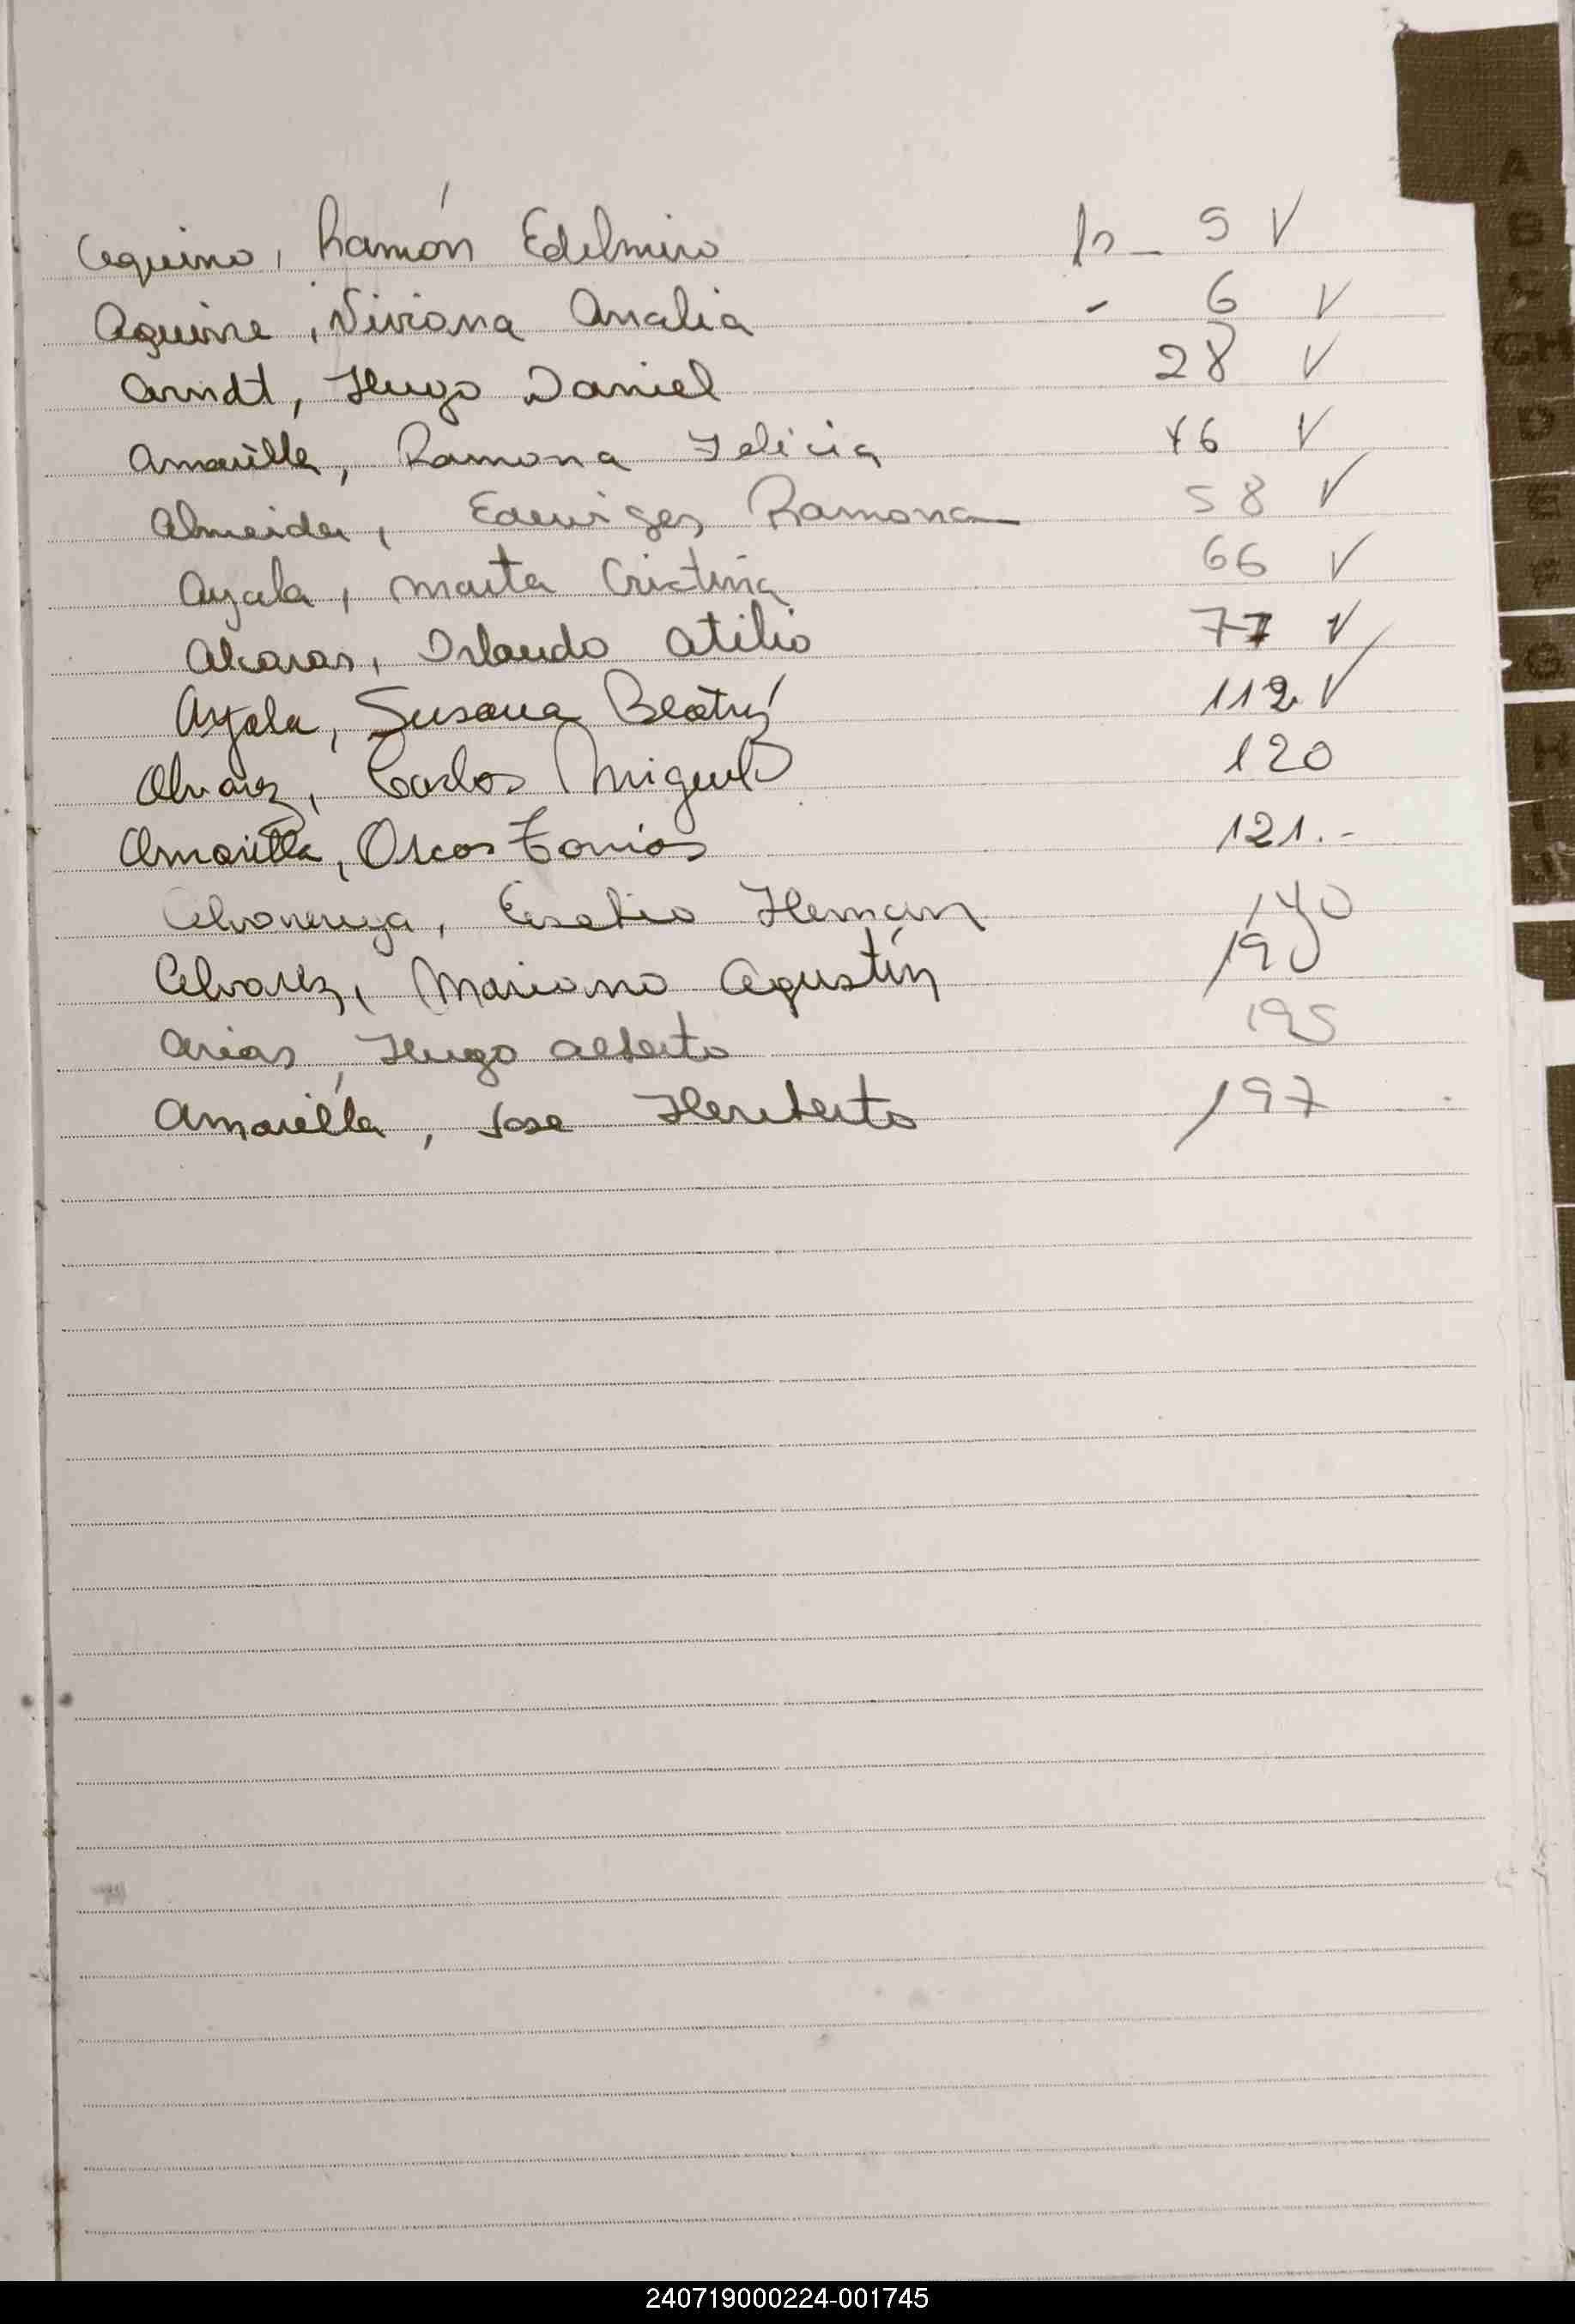 Aquino, Ramón Edelmiro fs_ 5 V
Aguirre, Viviana Analia - 6 V
Arndt, Hugo Daniel 28 V
Amarilla, Ramona Felicia 46 V
Almeida, Eduviges Ramona 58 V
Ayala, Marta Cristina 66 V
Alcaras, Orlando Atilio 77 V
Ayala, Susana Beatriz 112 V
Alvarez, Carlos Miguel 120
Amarilla, Oscar 121.-
Alvarenga, Hernan 140
Alvarez, Mariano Agustín 190
Arias, Hugo Alberto 195
Amarilla, José Heriberto 197
A
B
C
CH
D
E
F
G
H
I
240719000224-001745